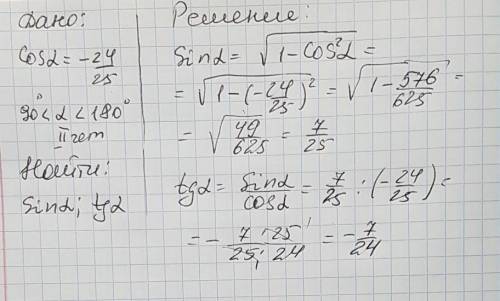 Дано:
cosα = -24/25
90° < α < 180°
II чет
Найти:
sinα; tgα
Решение:
sinα = √(1 - cos²α) =
= √(1 - (-24/25)²) = √(1 - 576/625) =
= √(49/625) = 7/25
tgα = sinα/cosα = 7/25 : (-24/25) =
= - 7 · 25/25 · 24 = -7/24